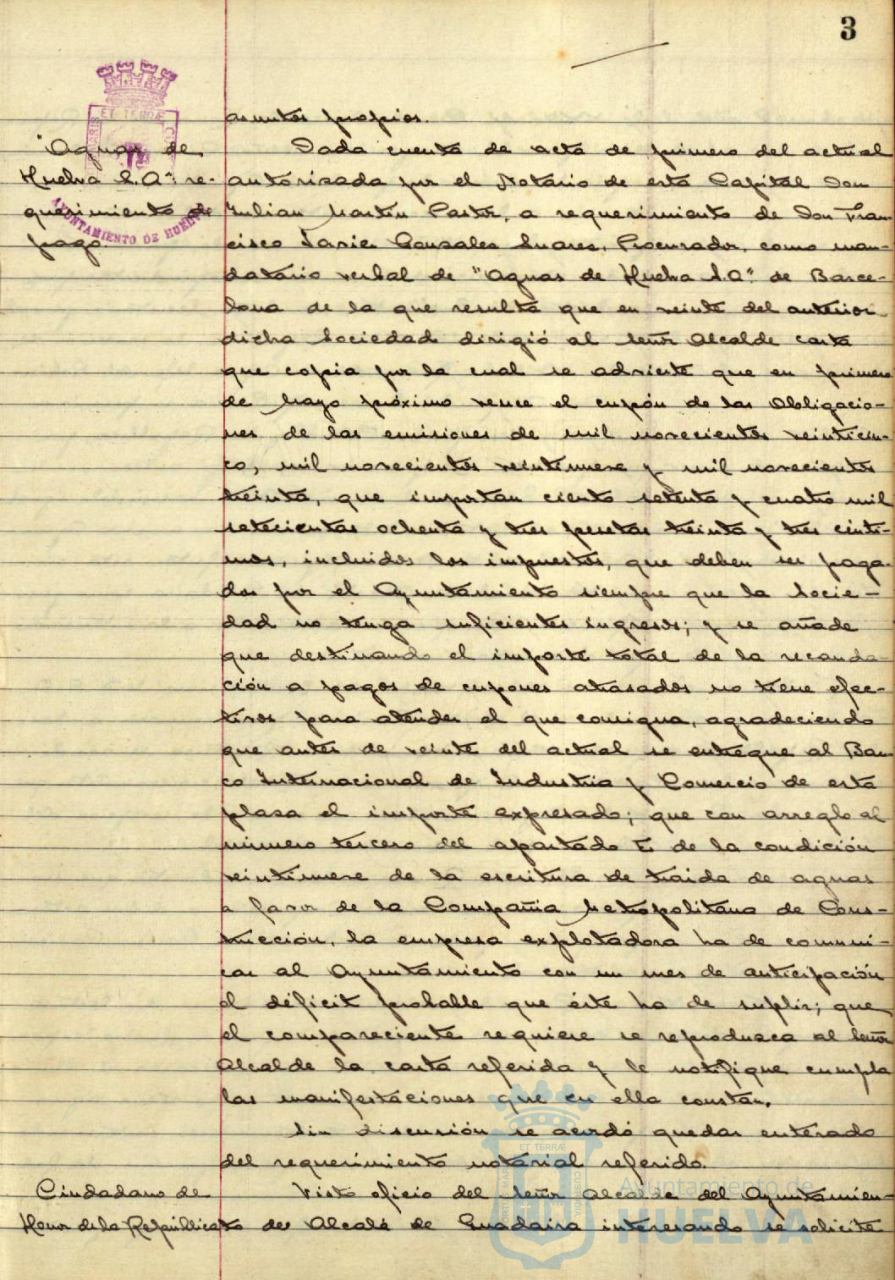 3
asuntos propios.
"Aguas de
Huelva S.A" re-
querimiento de
pago
Dada cuenta de acta de primero del actual
autorizada por el Notario de esta Capital Don
Julian Martín Pastor, a requerimiento de Don Fran-
cisco Javier Gonzalez Suarez, Procurador, como man-
datario verbal de "Aguas de Huelva S.A" de Barce-
lona de la que resulta que en veinte del anterior
dicha Sociedad dirigió al Señor Alcalde carta
que copia por la cual se advierte que en primero
de Mayo próximo vence el cupón de las Obligacio-
nes de las emisiones de mil novecientos veinticin-
co, mil novecientos veintinueve y mil novecientos
treinta, que importan ciento setenta y cuatro mil
setecientas ochenta y tres pesetas treinta y tres cénti-
mos, incluidos los impuestos, que deben ser paga-
dos por el Ayuntamiento siempre que la Socie-
dad no tenga suficientes ingresos; y se añade
que destinando el importe total de la recauda
ción a pagos de cupones atrasados no tiene efec-
tivos para atender el que consigna, agradeciendo
que antes de veinte del actual se entregue al Ban
co Internacional de Industria y Comercio de esta
plaza el importe expresado; que con arreglo al
número tercero del apartado E de la condición
veintinueve de la escritura de traida de aguas
a favor de la Compañia Metropolitana de Cons-
trucción, la empresa explotadora ha de comuni-
car al Ayuntamiento con un mes de anticipación
el déficit probable que éste ha de suplir; que
el compareciente requiere se reproduzca al Señor
Alcalde la carta referida y le notifique cumpla
las manifestaciones que en ella constan.
Sin discusión se acordó quedar enterado
del requerimiento notarial referido.
Ciudadano de
Honor de la República
Visto oficio del Señor Alcalde del Ayuntamien-
to de Alcalá de Guadaira interesando se solicite
AYUNTAMIENTO DE HUELVA
ET TERRÆ
Ayuntamiento de
HUELVA